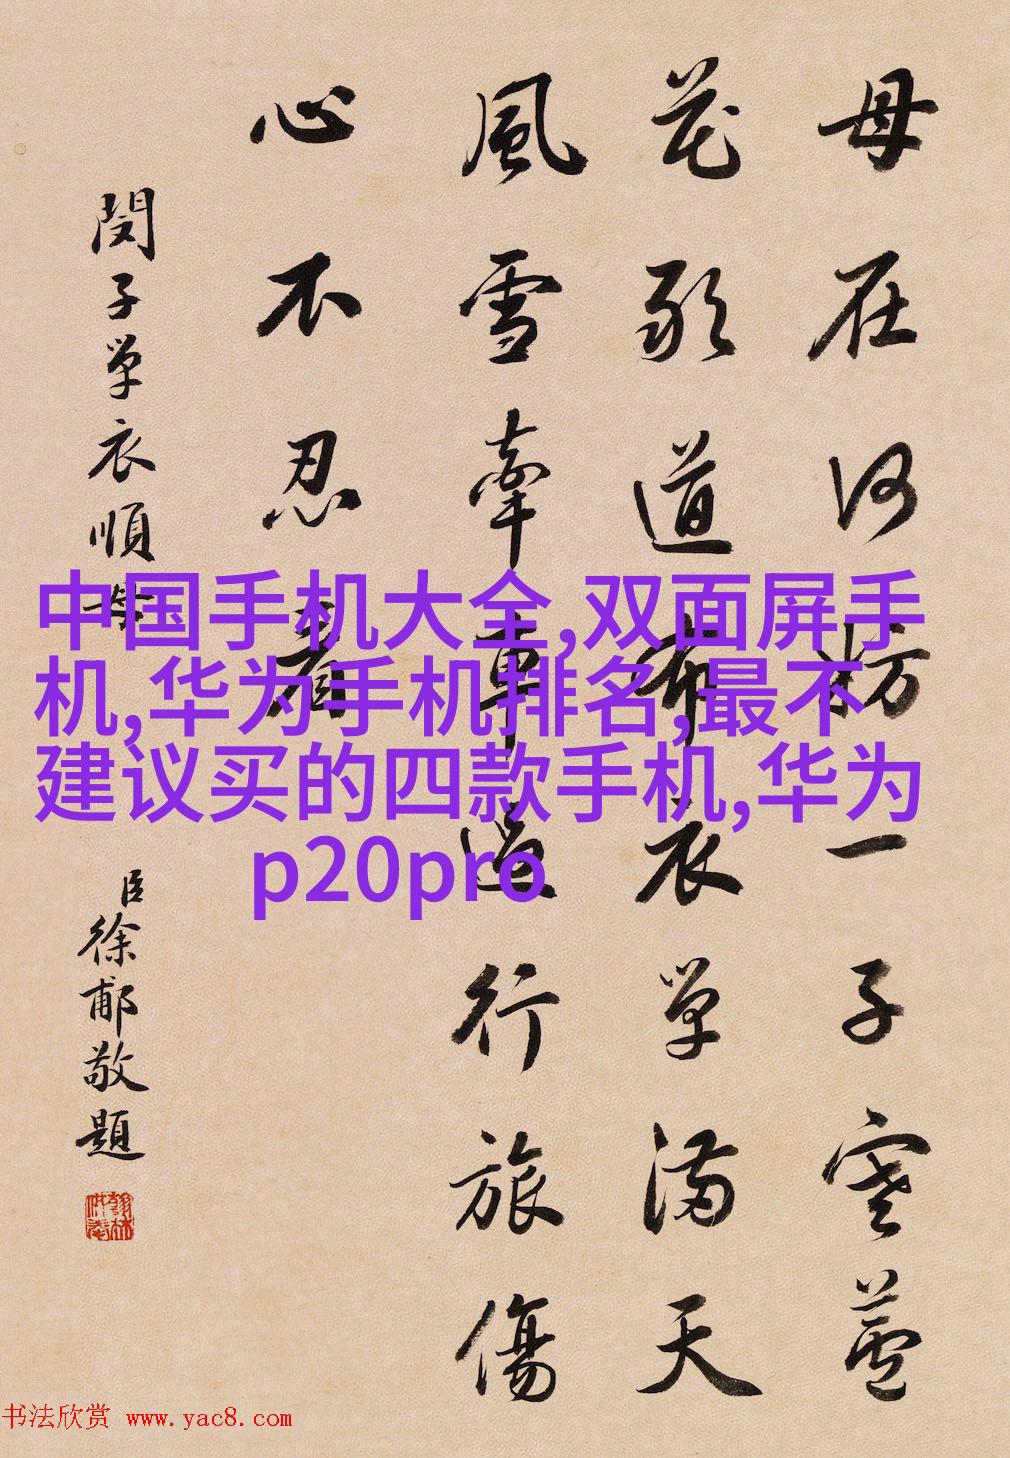 母在何妨一子寒蘆
花道布衣單滿天
風雪牽車行旅傷
心不忍看
閔子單衣順母
臣徐郙敬題
中国手机大全,双面屏手
机,华为手机排名,最不
建议买的四款手机,华为
p20pro
书法欣赏 www.yac8.com